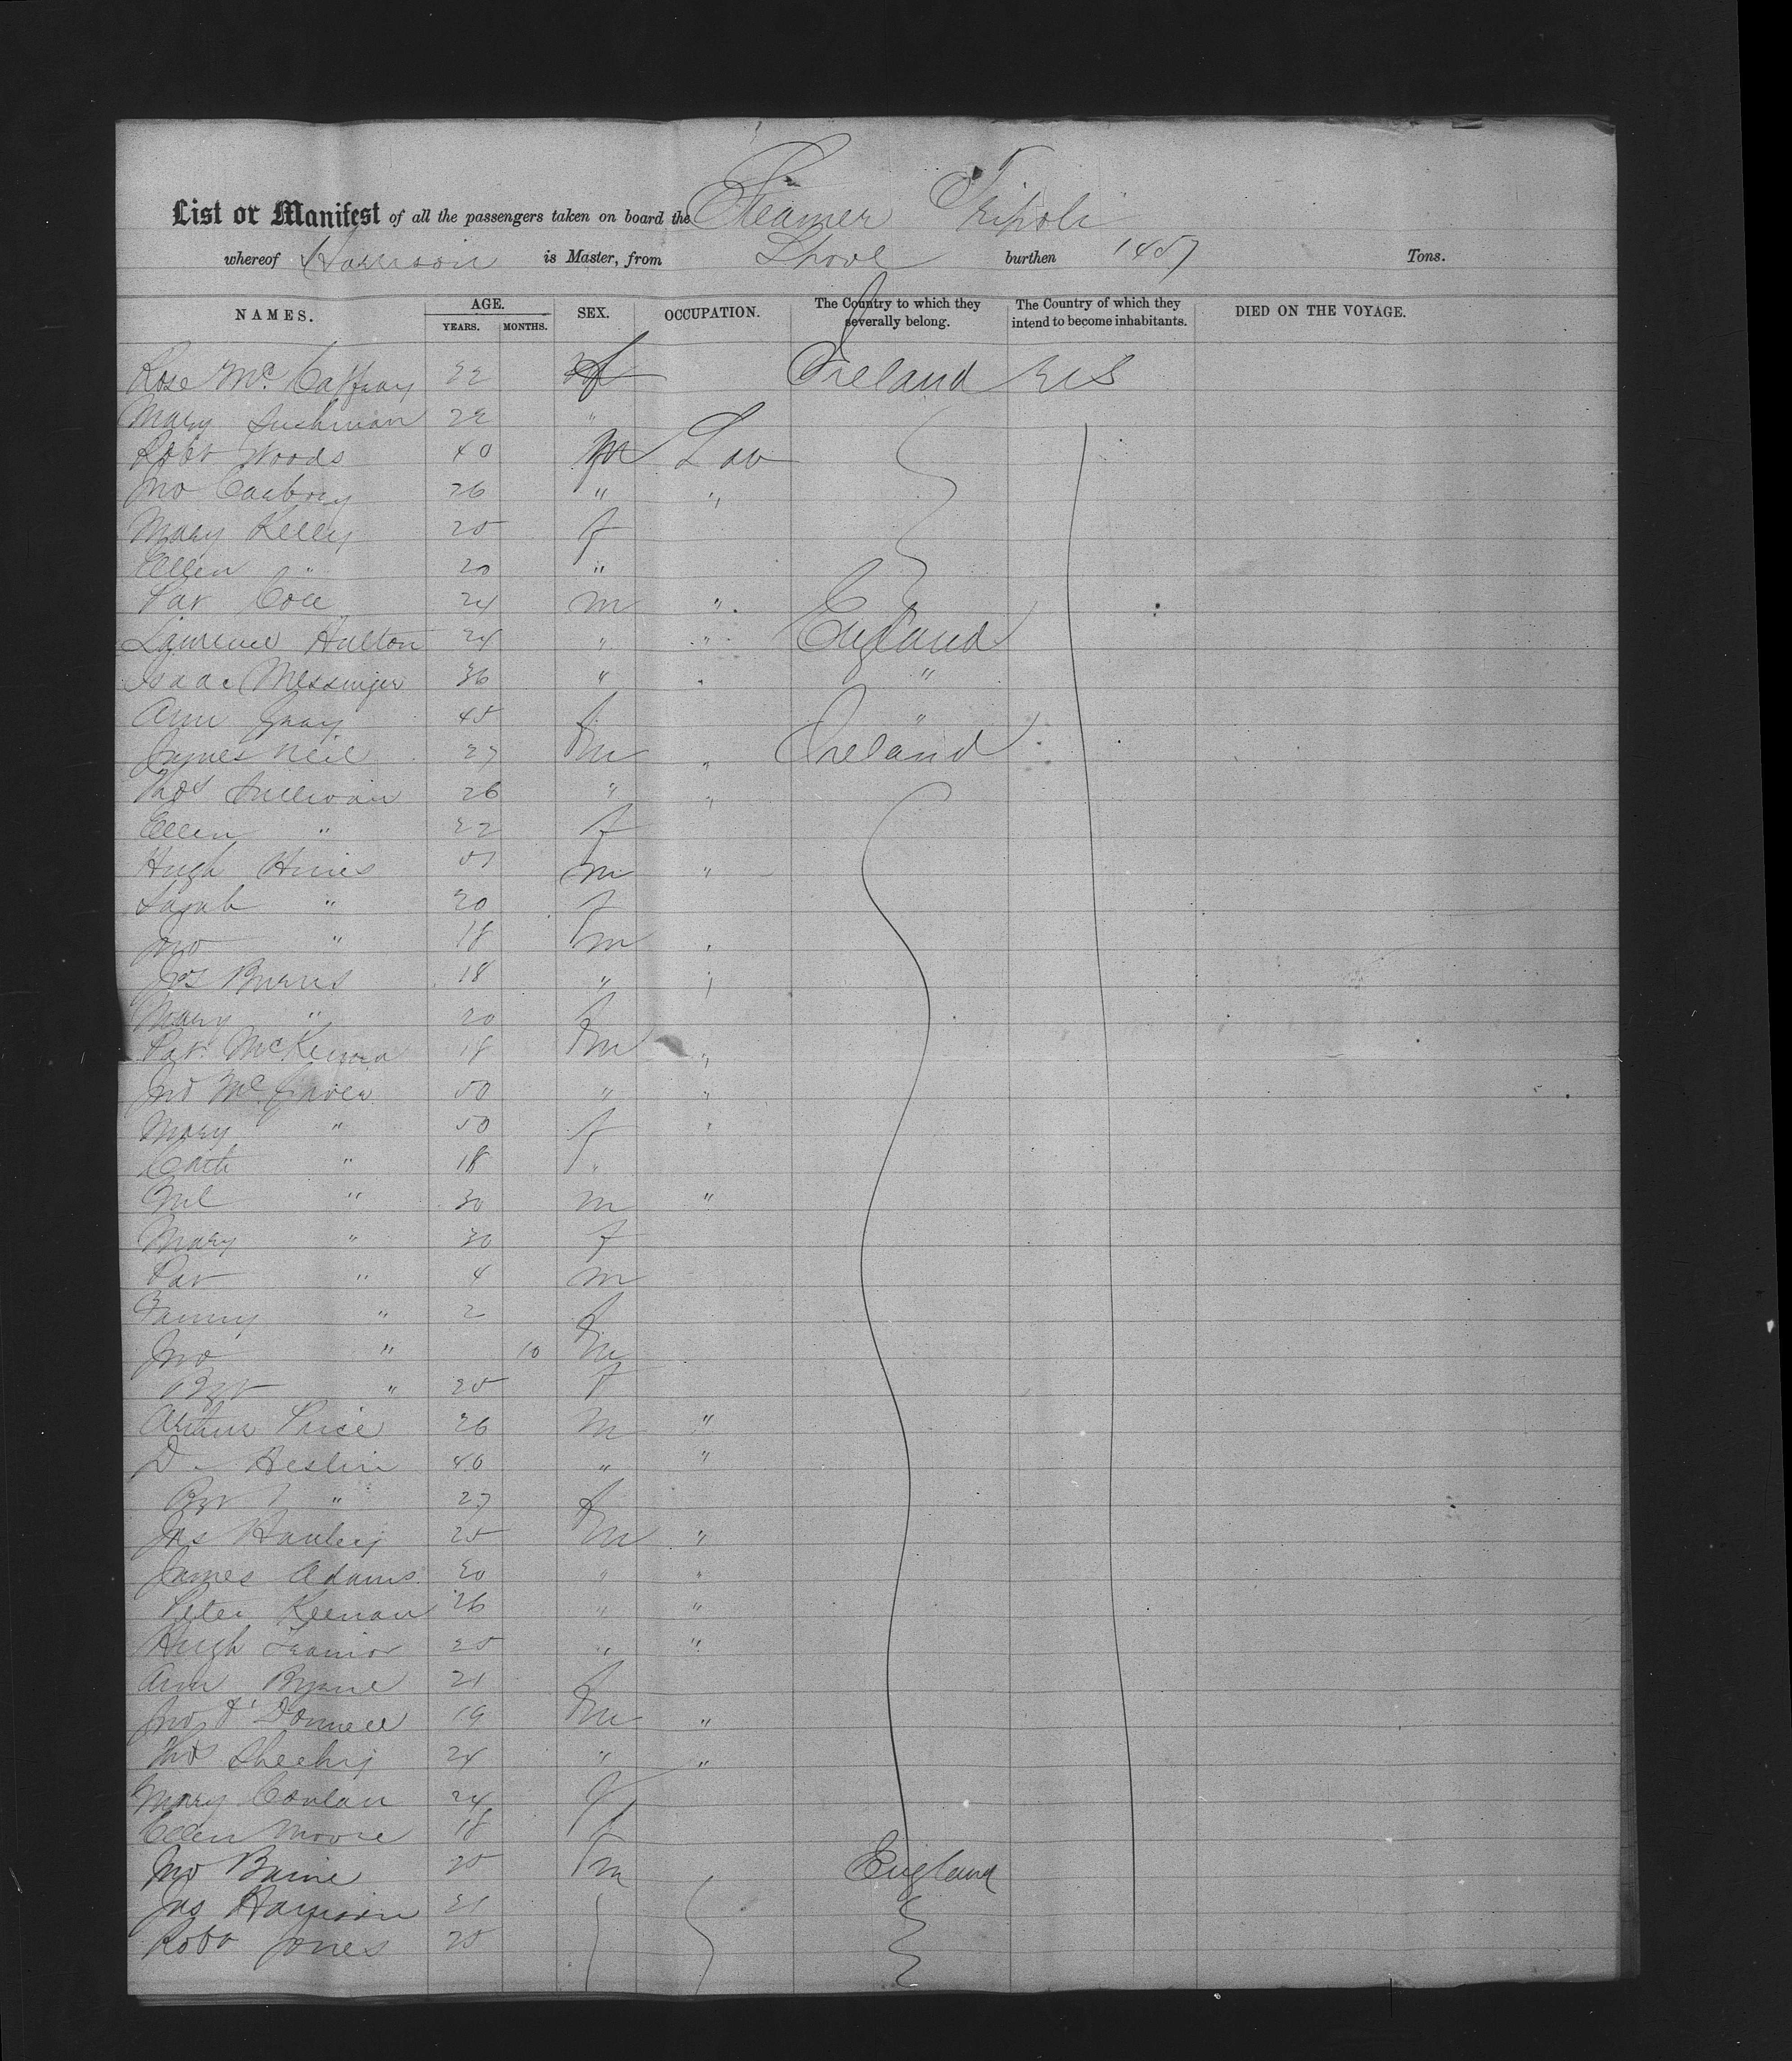 List or Manifest of all the passengers taken on board the Steamer Tripoli
whereof Harrison is Master, from Lpool burthen 1457 Tons.
NAMES. AGE. YEARS. MONTHS. SEX. OCCUPATION. The Country to which they severally belong. The Country of which they intend to become inhabitants. DIED ON THE VOYAGE.
Rose Mc. Caffray 22 f Ireland US
Mary 22 "
Robt Woods 40 m Lab
Jno Carbory 26 " "
Mary Kelly 20 f
Ellen " 20 "
Pat Coll 24 m "
Lawrence Hulton 24 " " England
Isaac Messinger 36 " " "
Ann Gray 45 f "
James Neil 27 m " Ireland
Thos Sullivan 26 " "
Ellen " 22 f
Hugh Hines m "
Sarah " 20 f
Jno " 18 m "
Jos Burns 18 " "
Mary " 20 f
Pat McKenna 18 m "
Jno Mc 50 " "
Mary " 50 f "
Cath " 18 "
Ml " 30 m "
Mary " 30 f
Pat " 4 m
Fanny " 2 f
Jno " 10 m
Bgt " 25 f
Arthur Price 26 m "
D Heslin 40 " "
Bgt " 27 f
Jas Hanley 25 m "
James Adams 20 " "
Peter Keenan 26 " "
Hugh Trainor 25 " "
Ann Byrne 21 f
Jno O'Donnell 19 m "
Thos Sheehy 24 " "
Mary Conlan 24 f
Ellen Moore 18 f
Jno 20 m England
Jas Harrison 21
Robt Jones 20